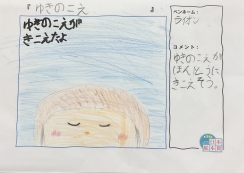 『ゆきのこえ』
ゆきのこえが
きこえたよ
ペンネーム:
ライオン
コメント:
ゆきのこえが
ほんとうに
きこえそう。